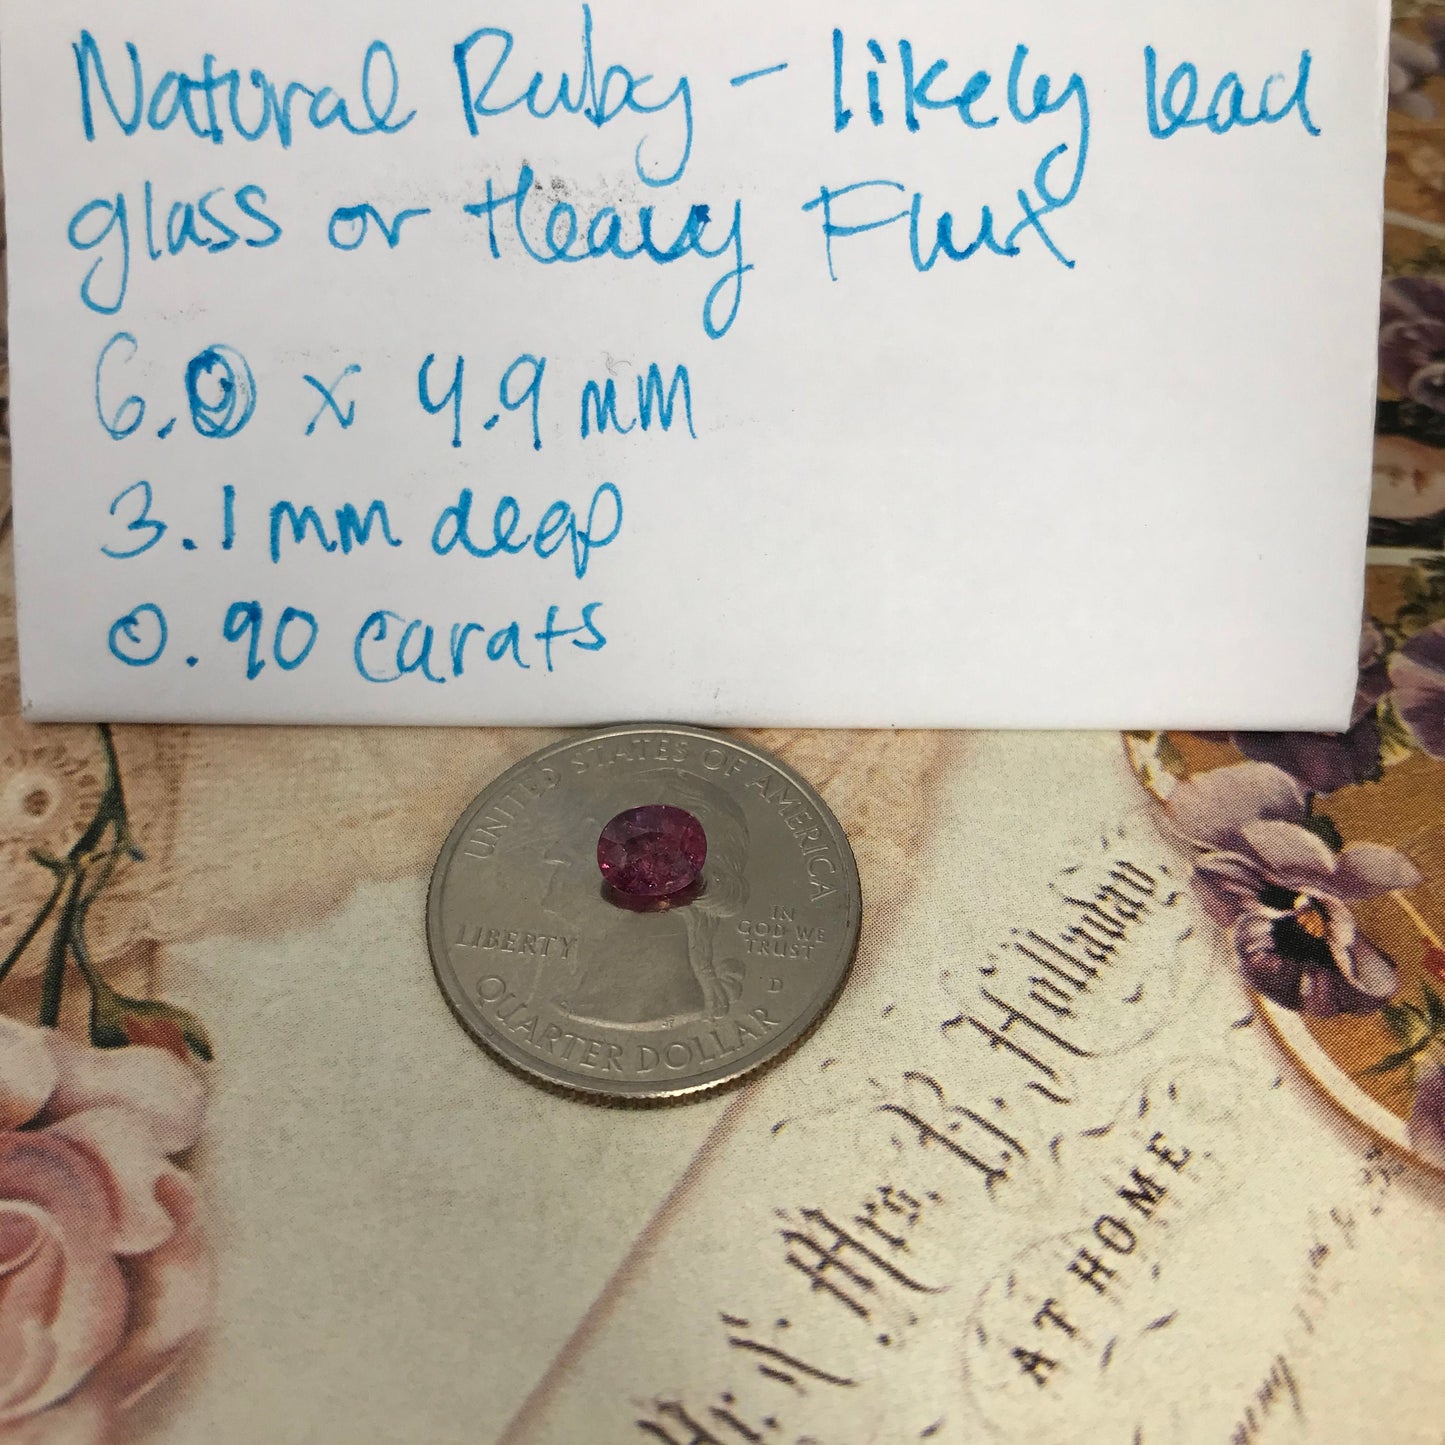 Natural Ruby - likely lead
glass or Heavy Flux
6.0 x 4.9 mm
3.1 mm deep
0.90 carats
UNITED STATES OF AMERICA
LIBERTY
IN
GOD WE
TRUST
D
QUARTER DOLLAR
Mr. & Mrs. B. Holladay.
AT HOME